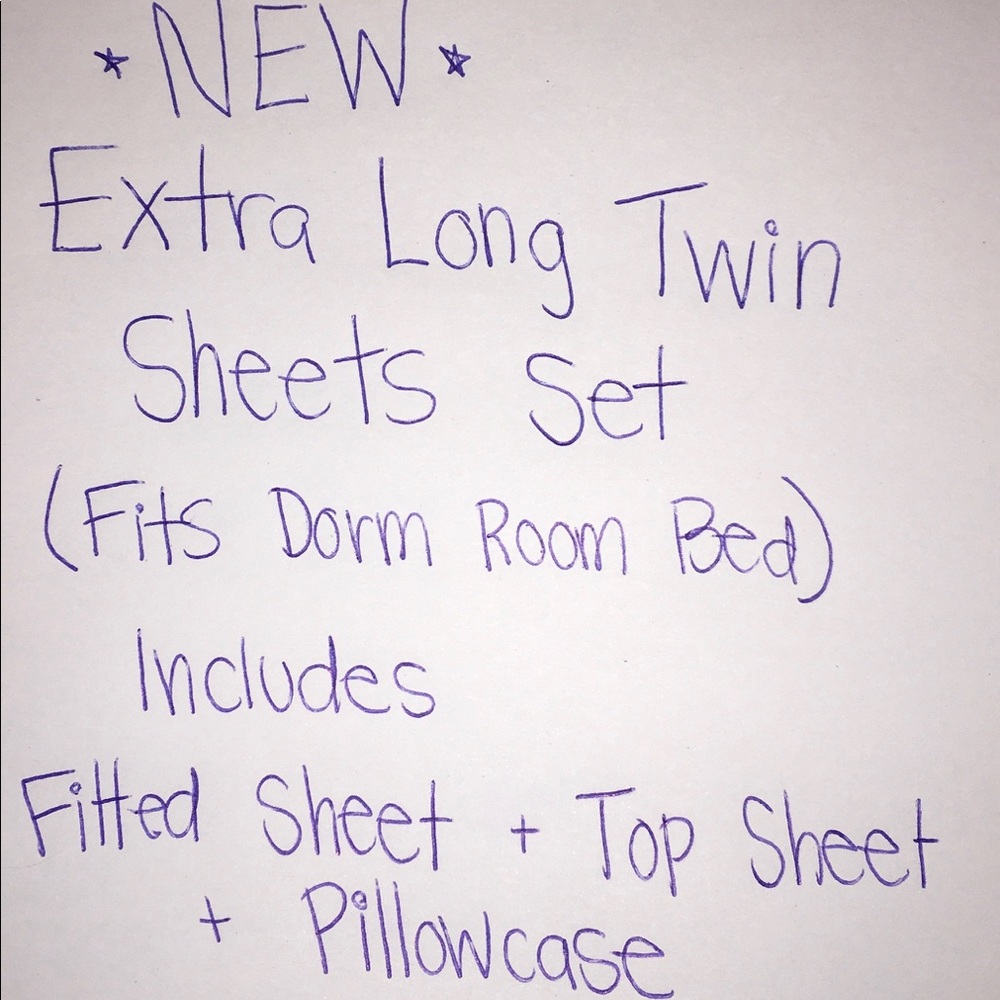 *NEW*
Extra Long Twin
Sheets Set
(Fits Dorm Room Bed)
Includes
Fitted Sheet + Top Sheet
+ Pillowcase